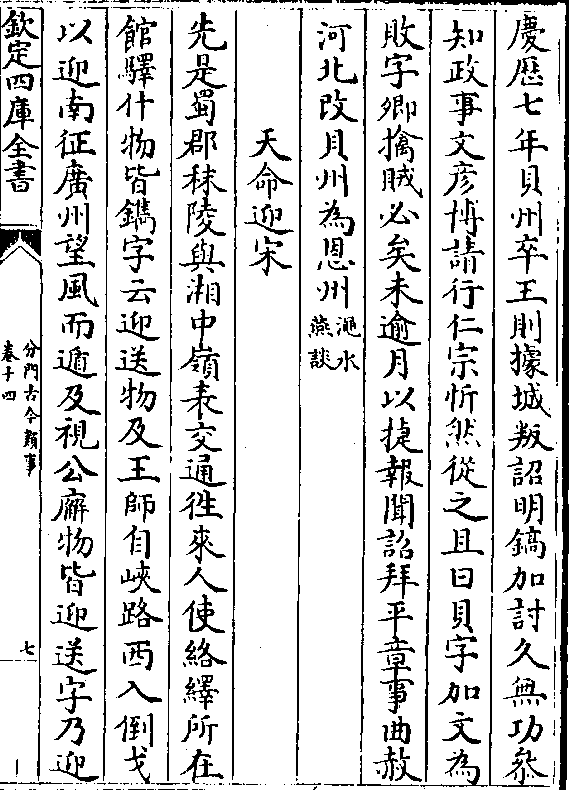 慶歷七年貝州卒王則據城叛詔明鎬加討久無功叅
知政事文彦博請行仁宗忻然從之且曰貝字加文為
敗字卿擒賊必矣未逾月以捷報聞詔拜平章事曲赦
河北改貝州為恩州澠水燕談
天命迎宋
先是蜀郡秣陵與湘中嶺表交通徃來人使絡繹所在
館驛什物皆鐫字云迎送物及王師自峽路西入倒戈
以迎南征廣州望風而遁及視公廨物皆迎送字乃迎
欽定四庫全書
分門古今類事
卷十四
七